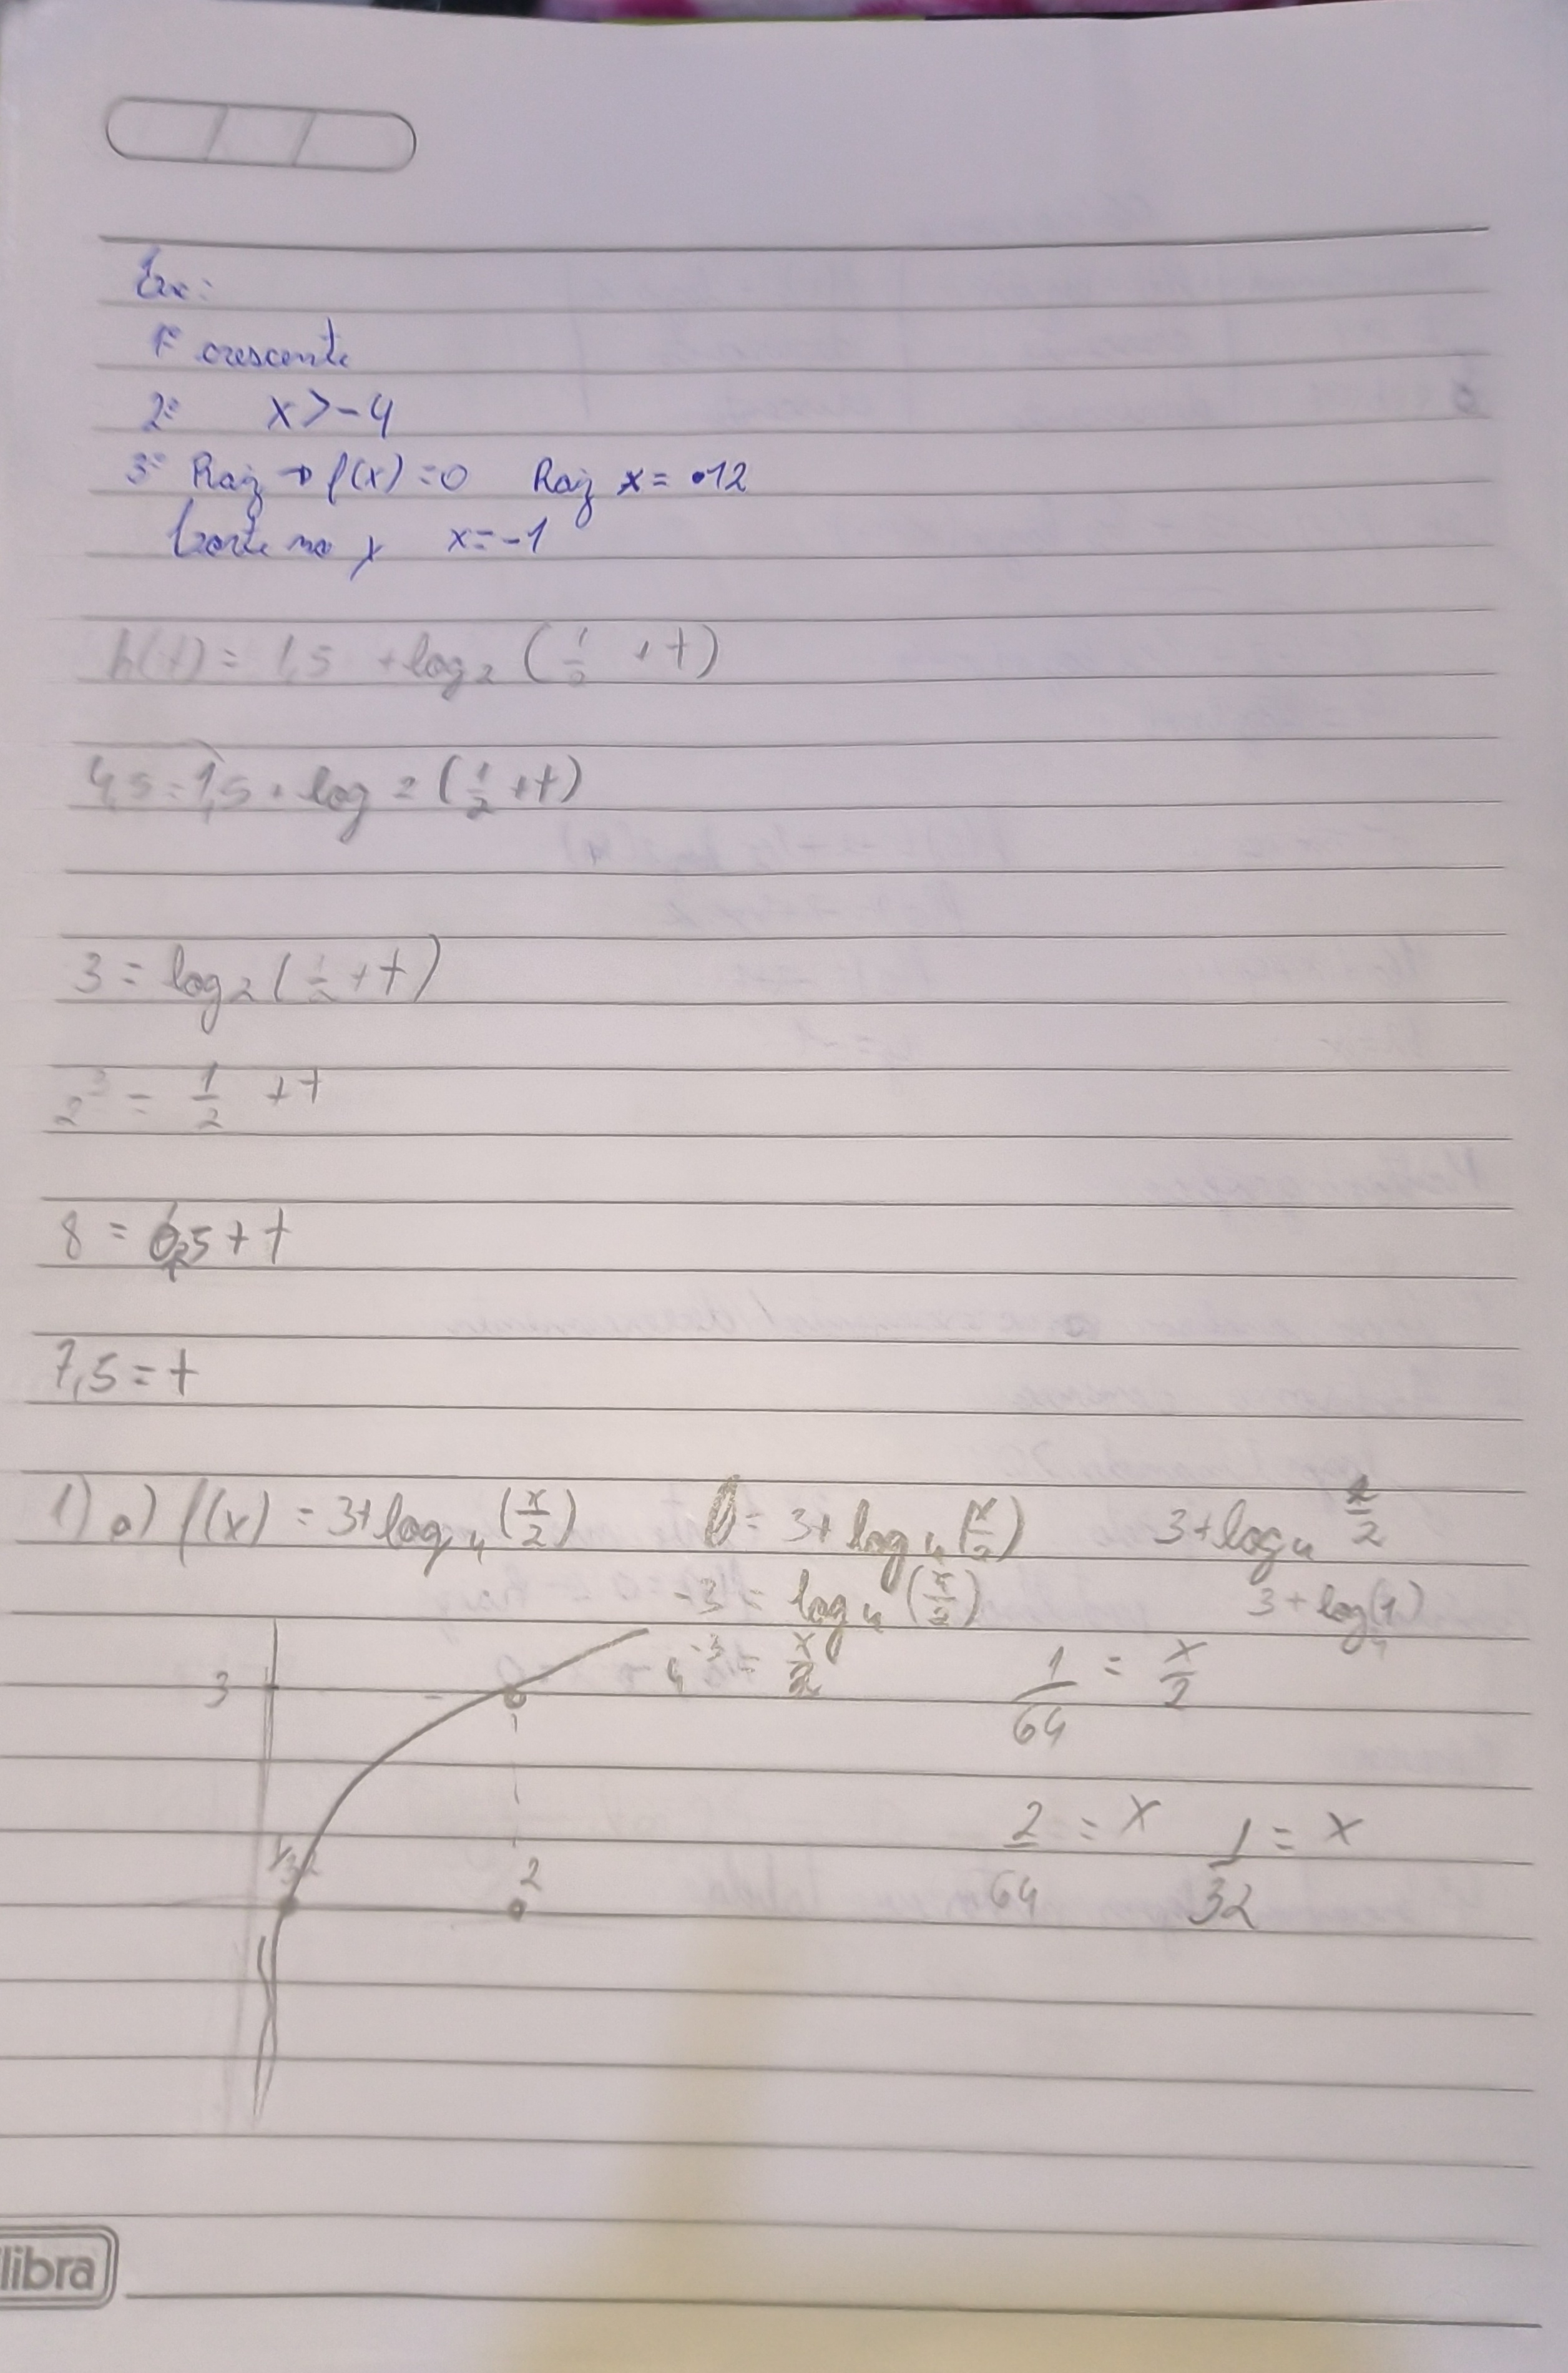 Ex:
1º crescente
2º x > -4
3º Raiz → f(x) = 0 Raiz x = 12
Corte no y x = -1
h(t) = 1,5 + log₂ (1/2 + t)
4,5 = 1,5 + log 2 (1/2 + t)
3 = log₂ (1/2 + t)
2³ = 1/2 + t
8 = 0,5 + t
7,5 = t
1) a) f(x) = 3 + log₄ (x/2) 0 = 3 + log₄ (x/2) 3 + log₄ 2/2
-3 = log₄ (x/2) 3 + log₄(1)
3 4⁻³ = x/2 1/64 = x/2
1/32 2 2/64 = x 1/32 = x
libra